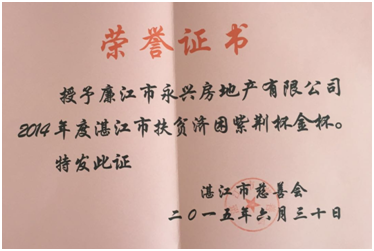 荣誉证书
授予廉江市永兴房地产有限公司
2014年度湛江市扶贫济困紫荆杯金杯。
特发此证
湛江市慈善会
二〇一五年六月三十日